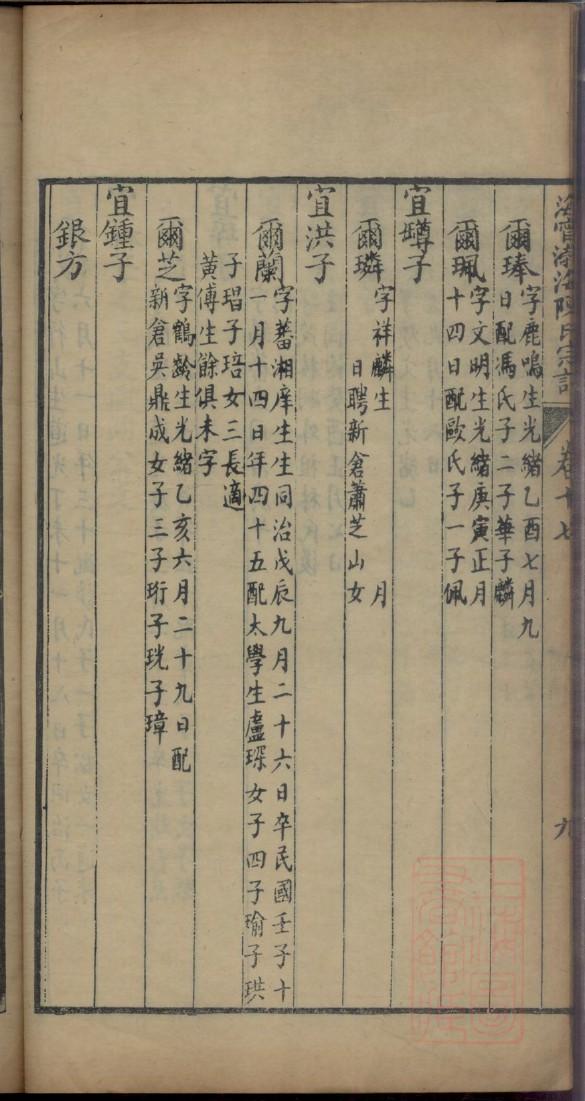 海甯渤海陳氏宗譜 卷十七 九
爾琫 字鹿鳴生光緒乙酉七月九
日配馮氏子二子華子麟
爾珮 字文明生光緒庚寅正月
十四日配歐氏子一子佩
宜罇子
爾璘 字祥麟生 月
日聘新倉蕭芝山女
宜洪子
爾蘭 字蕃湘庠生生同治戊辰九月二十六日卒民國壬子十
一月十四日年四十五配太學生盧琛女子四子瑜子珙
子琩子琣女三長適
黃傅生餘俱未字
爾芝 字鶴齡生光緒乙亥六月二十九日配
新倉吳鼎成女子三子珩子珖子璋
宜鍾子
銀方